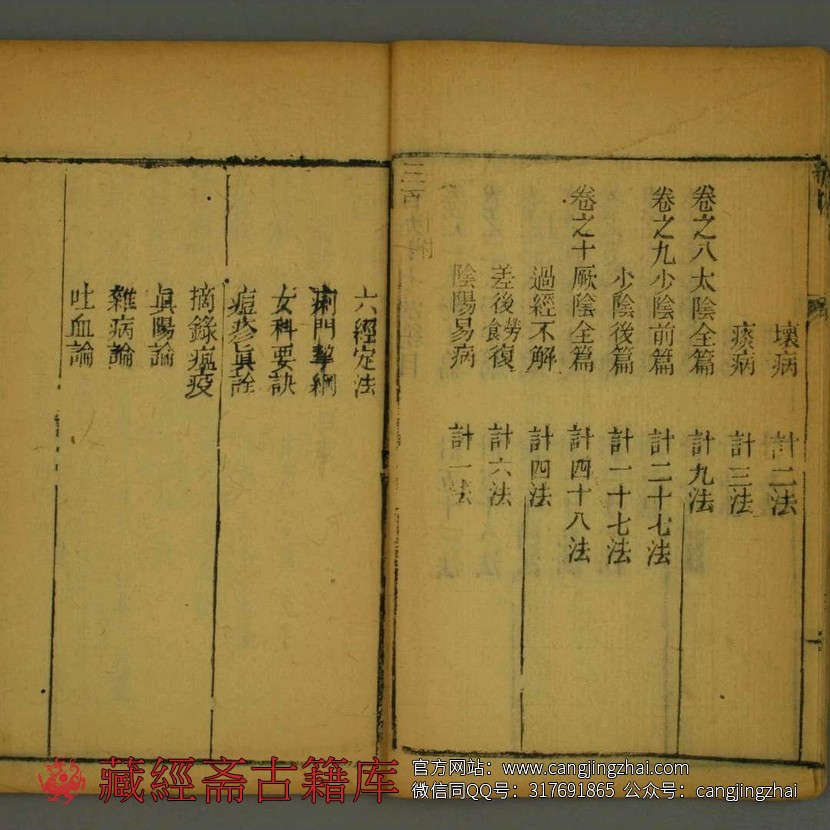 壞病 計二法
痰病 計三法
卷之八太陰全篇 計九法
卷之九少陰前篇 計二十七法
少陰後篇 計一十七法
卷之十厥陰全篇 計四十八法
過經不解 計四法
差後勞食復 計六法
陰陽易病 計一法
六經定法
痢門挈綱
女科要訣
痘疹眞詮
摘錄瘟疫
眞陽論
雜病論
吐血論
藏經斋古籍库
官方网站：www.cangjingzhai.com
微信同QQ号：317691865 公众号：cangjingzhai